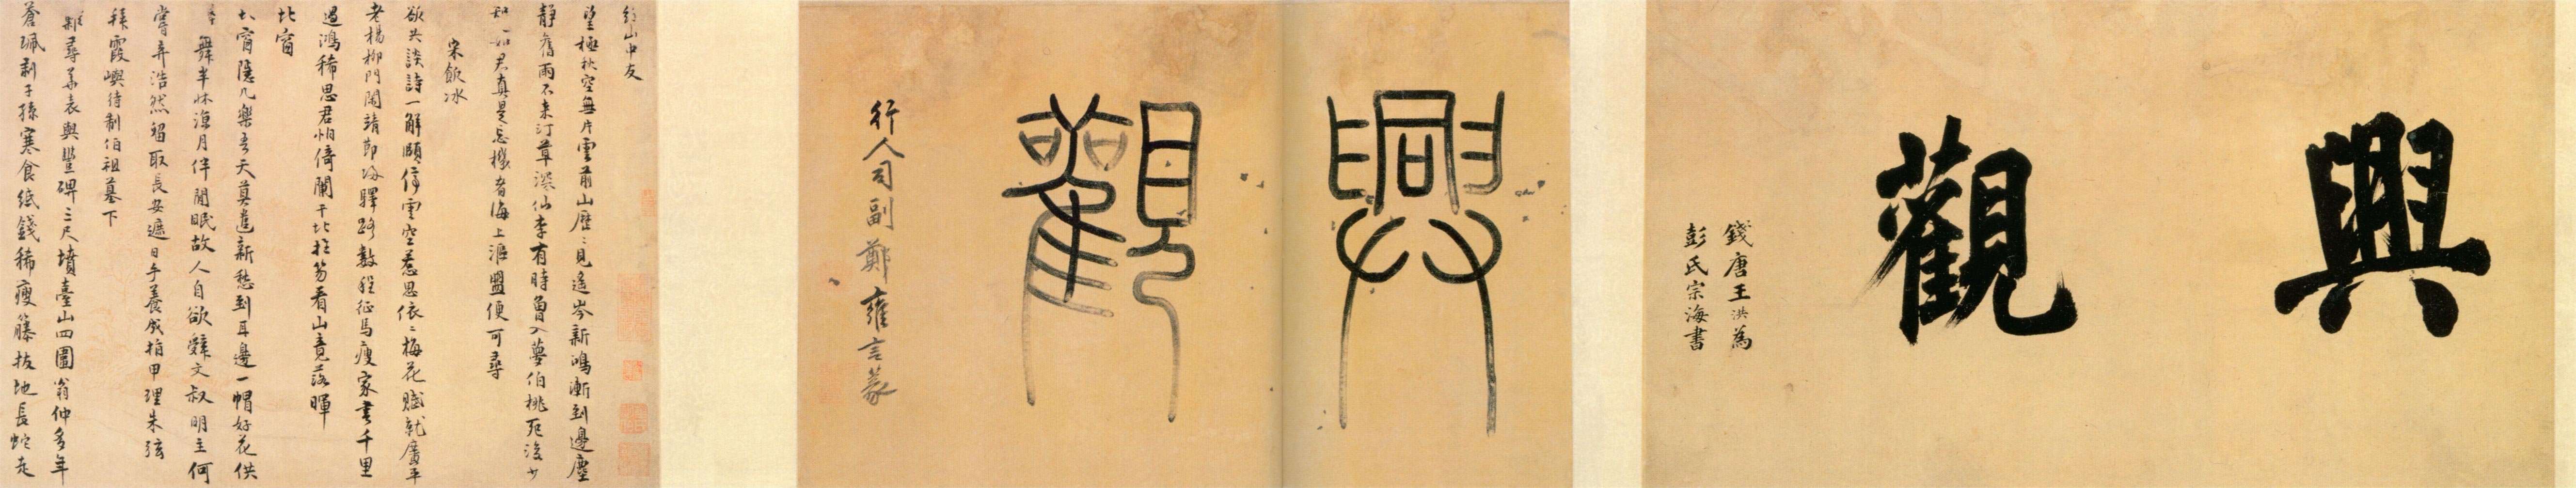 興觀
錢唐王洪為
彭氏宗海書
興觀
行人司副鄭雍言篆
山中友
望極秋空無片雲前山歷歷見遙岑新鴻漸到邊塵
靜舊雨不來汀草深仙李有時曾入夢伯桃死後少
知如君真是忘機者海上漚盟便可尋
宋飲冰
欲共談詩一解頤停雲空惹思依依梅花賦就廣平
老楊柳門閑靖節歸驛路數程征馬瘦家書千里
過鴻稀思君怕倚闌干北拄笏看山竟落暉
北窗
北窗隱几樂吾天莫遣新愁到耳邊一帽好花供
舞半床涼月伴閒眠故人自欲辭文叔明主何
嘗棄浩然留取長安遮日手養成指甲理朱弦
拜霞嶼待制伯祖墓下
難尋華表與豐碑三尺墳臺山四圍翁仲多年
蒼珮剥子孫寒食紙錢稀瘦藤拔地長蛇走